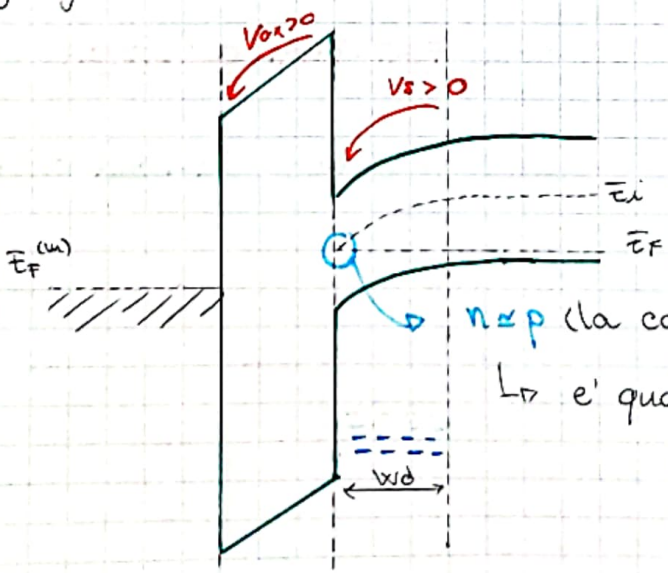 Vox>0
Vs > 0
Ei
EF
EF(m)
n≃p (la co
↳ e' qua
Wd